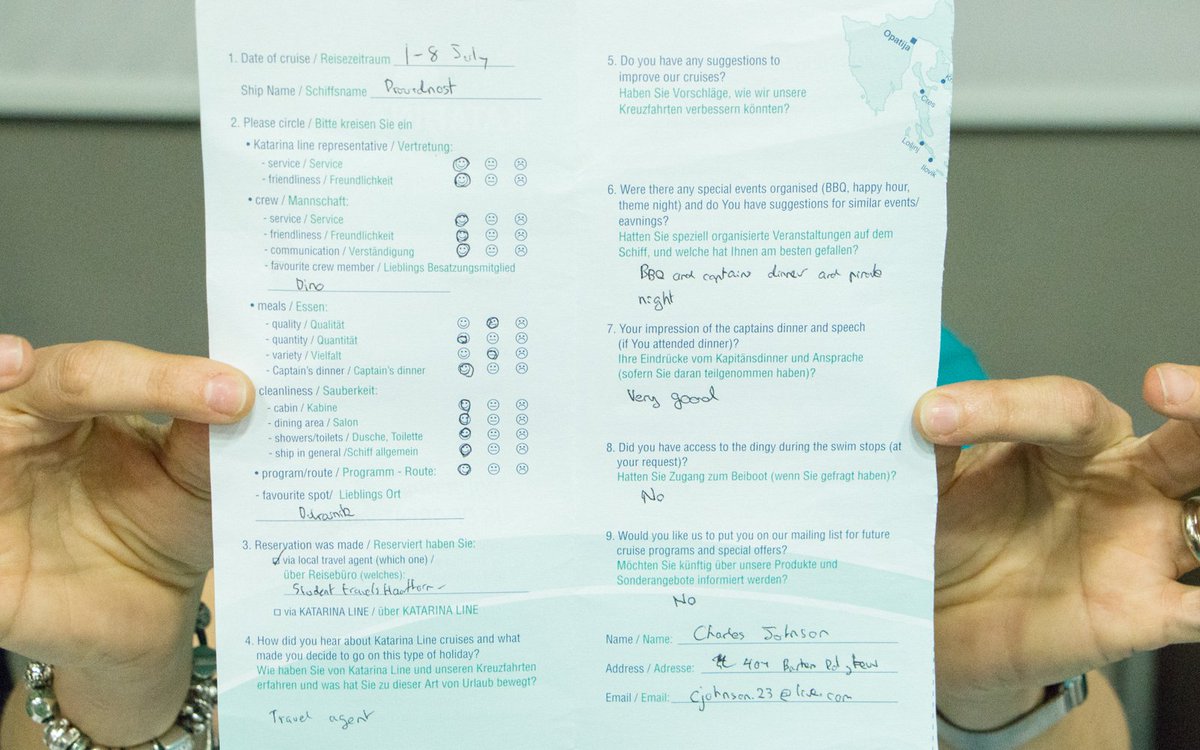 1. Date of cruise / Reisezeitraum 1-8 July
Ship Name / Schiffsname Providnost
2. Please circle / Bitte kreisen Sie ein
• Katarina line representative / Vertretung:
- service / Service
- friendliness / Freundlichkeit
• crew / Mannschaft:
- service / Service
- friendliness / Freundlichkeit
- communication / Verständigung
- favourite crew member / Lieblings Besatzungsmitglied
Dino
• meals / Essen:
- quality / Qualität
- quantity / Quantität
- variety / Vielfalt
- Captain's dinner / Captain's dinner
cleanliness / Sauberkeit:
- cabin / Kabine
- dining area / Salon
- showers/toilets / Dusche, Toilette
- ship in general /Schiff allgemein
• program/route / Programm - Route:
- favourite spot/ Lieblings Ort
3. Reservation was made / Reserviert haben Sie:
via local travel agent (which one) /
über Reisebüro (welches):
Student travels
via KATARINA LINE / über KATARINA LINE
4. How did you hear about Katarina Line cruises and what
made you decide to go on this type of holiday?
Wie haben Sie von Katarina Line und unseren Kreuzfahrten
erfahren und was hat Sie zu dieser Art von Urlaub bewegt?
Travel agent
5. Do you have any suggestions to
improve our cruises?
Haben Sie Vorschläge, wie wir unsere
Kreuzfahrten verbessern könnten?
Opatija
Cres
Lošinj
Ilovik
6. Were there any special events organised (BBQ, happy hour,
theme night) and do You have suggestions for similar events/
eavnings?
Hatten Sie speziell organisierte Veranstaltungen auf dem
Schiff, und welche hat Ihnen am besten gefallen?
BBQ and captains dinner and pirate
night
7. Your impression of the captains dinner and speech
(if You attended dinner)?
Ihre Eindrücke vom Kapitänsdinner und Ansprache
(sofern Sie daran teilgenommen haben)?
Very good
8. Did you have access to the dingy during the swim stops (at
your request)?
Hatten Sie Zugang zum Beiboot (wenn Sie gefragt haben)?
No
9. Would you like us to put you on our mailing list for future
cruise programs and special offers?
Möchten Sie künftig über unsere Produkte und
Sonderangebote informiert werden?
No
Name / Name: Charles Johnson
Address / Adresse: 404
Email / Email: cjohnson.23@live.com